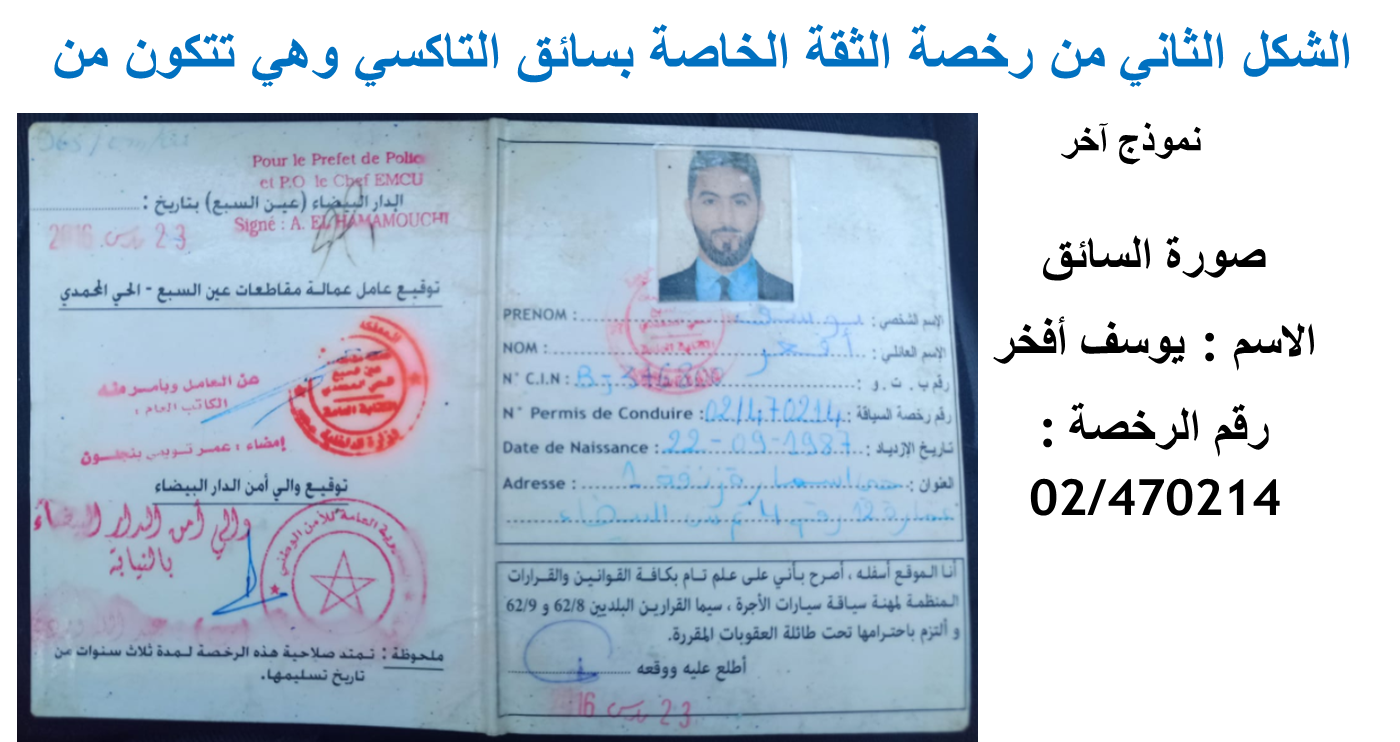 الشكل الثاني من رخصة الثقة الخاصة بسائق التاكسي وهي تتكون من
نموذج آخر
صورة السائق
الاسم : يوسف أفخر
رقم الرخصة :
02/470214
Pour le Prefet de Police
et P.O le Chef EMCU
الدار البيضاء (عين السبع) بتاريخ :
Signé : A. EL HAMAMOUCHI
23 مارس 2016
توقيع عامل عمالة مقاطعات عين السبع - الحي المحمدي
عن العامل وبأمر منه
الكاتب العام :
إمضاء : عمر تويمي بنجلون
توقيع والي أمن الدار البيضاء
والي أمن الدار البيضاء
بالنيابة
ملحوظة : تمتد صلاحية هذه الرخصة لمدة ثلاث سنوات من
تاريخ تسليمها.
PRENOM : يوسف الإسم الشخصي :
NOM : أفخر الإسم العائلي :
N° C.I.N : رقم ب . ت . و :
N° Permis de Conduire : 02/470214 رقم رخصة السياقة :
Date de Naissance : 22-09-1987 تاريخ الإزدياد :
Adresse : العنوان :
أنا الموقع أسفله ، أصرح بأني على علم تام بكافة القوانين والقرارات
المنظمة لمهنة سياقة سيارات الأجرة ، سيما القرارين البلديين 62/8 و 62/9
و ألتزم باحترامها تحت طائلة العقوبات المقررة.
أطلع عليه ووقعه
23 مارس 2016